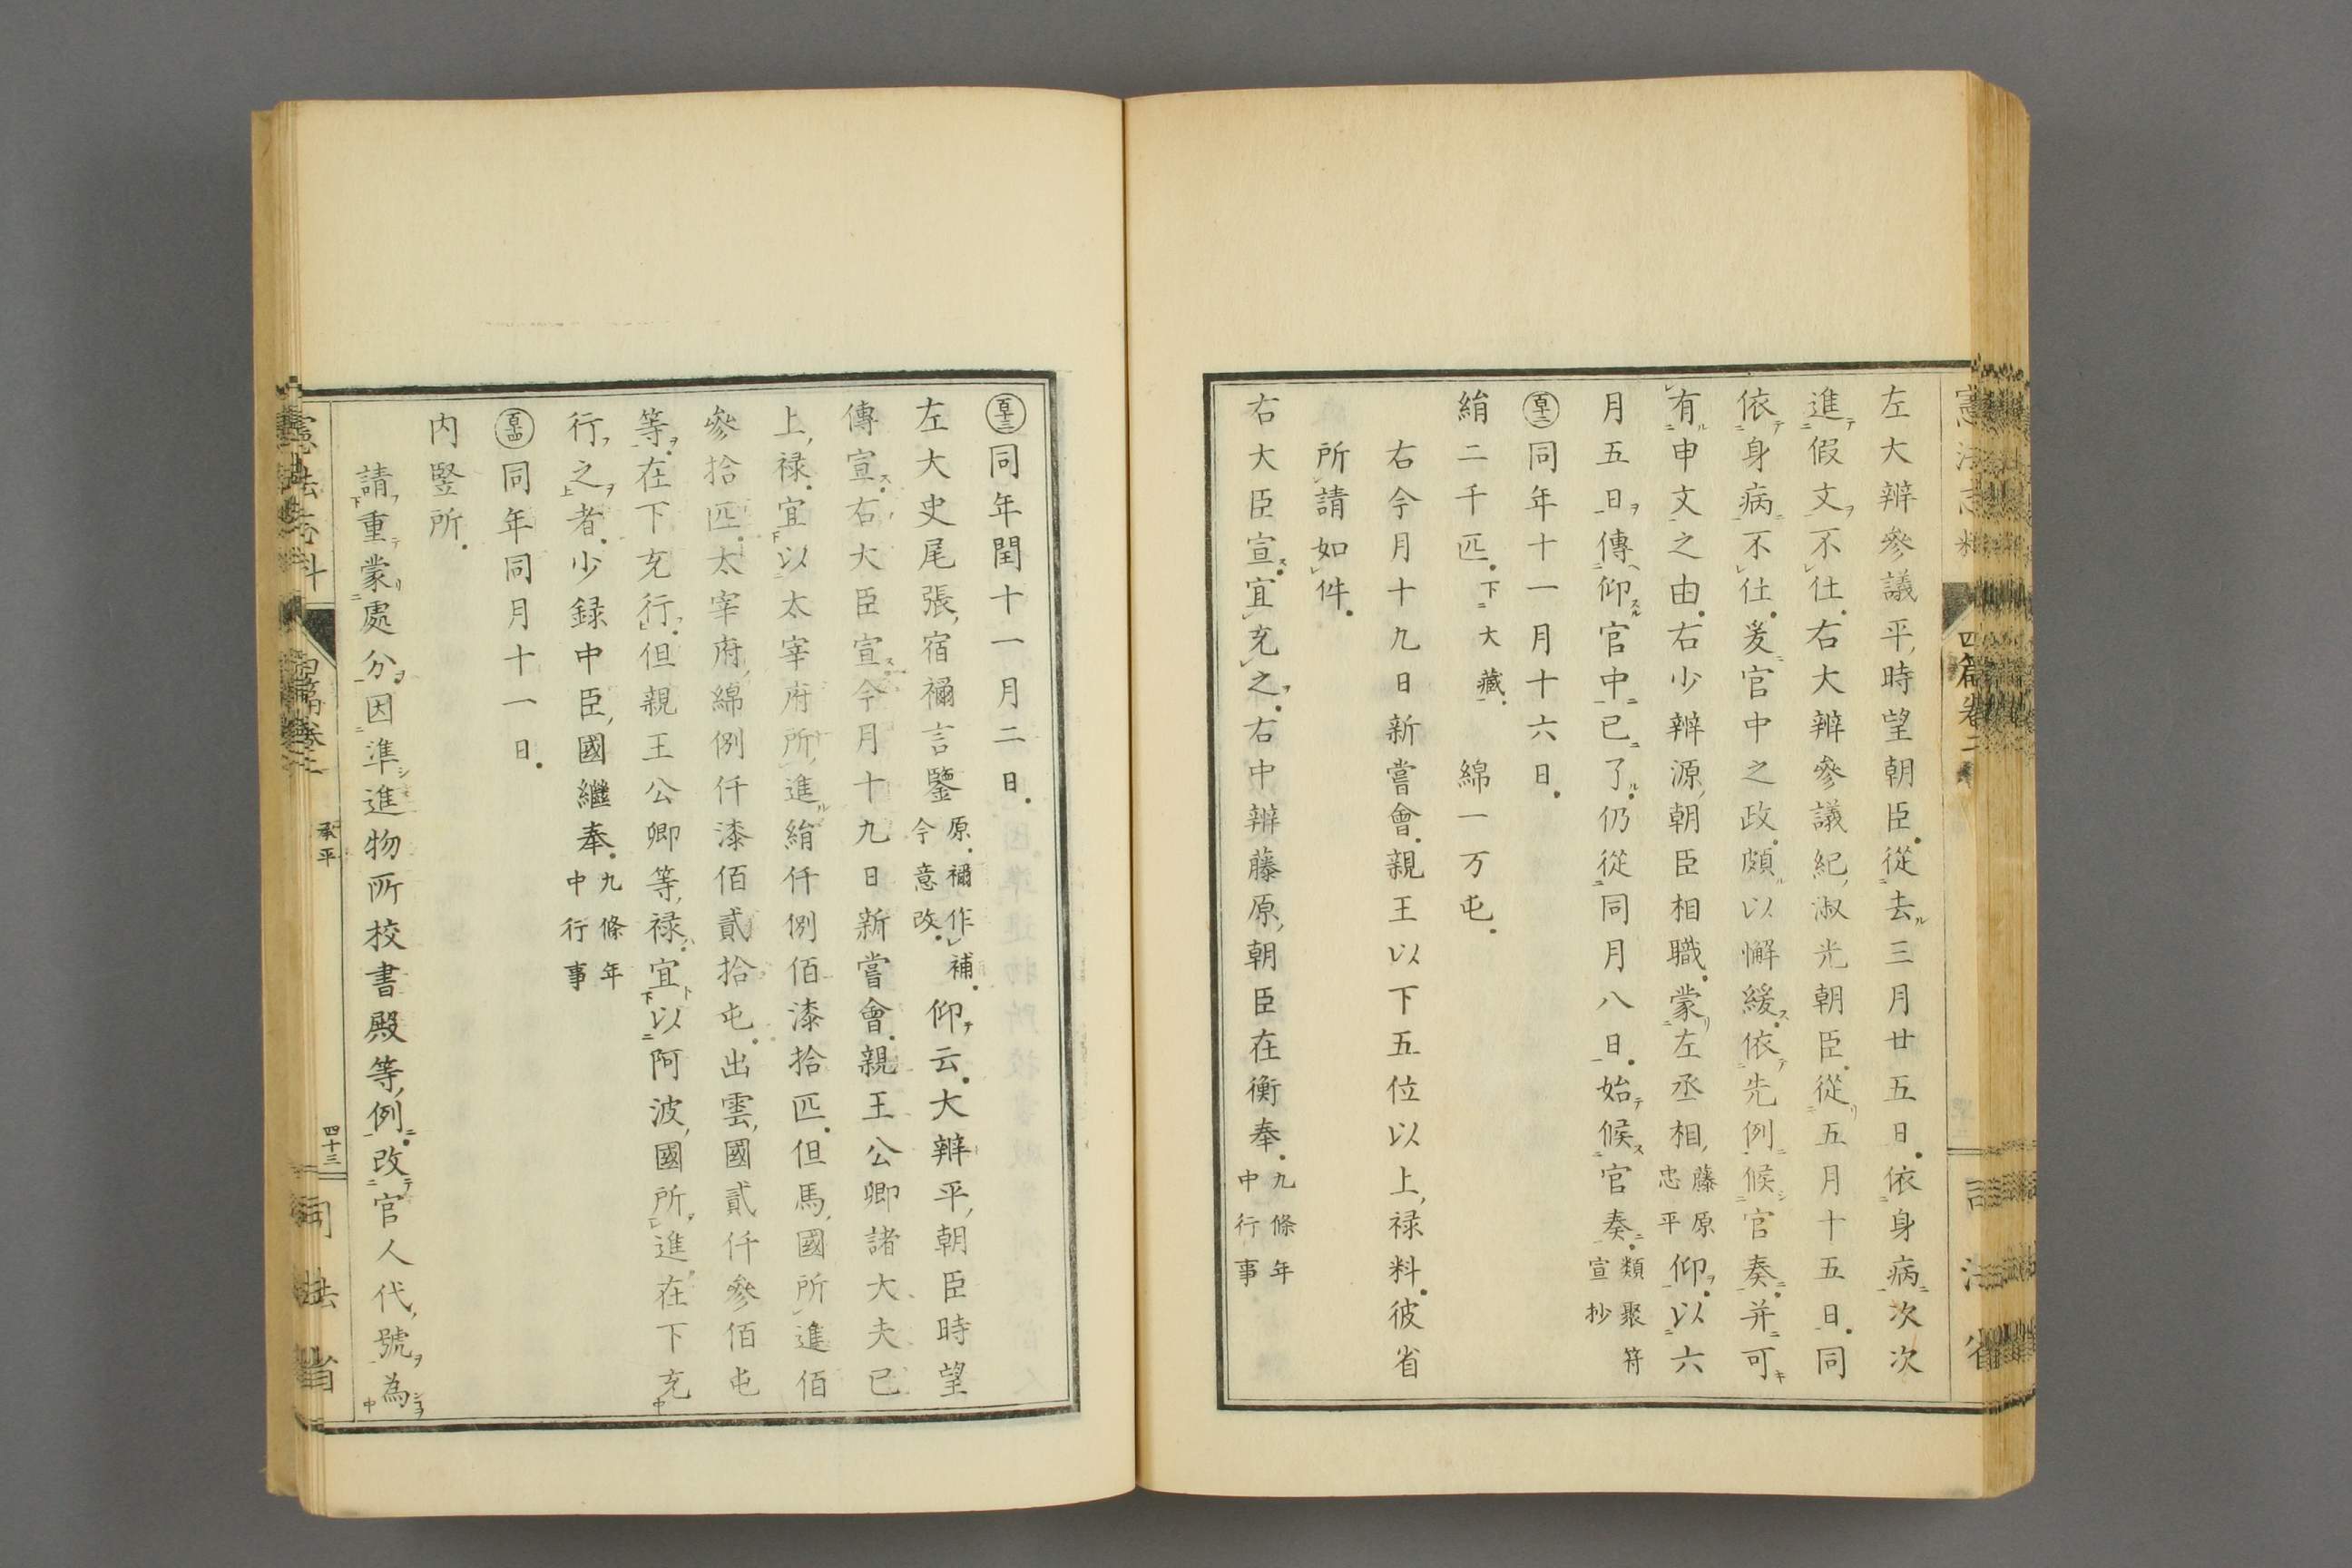 左大辨參議平時望朝臣從去ル三月廿五日依身病ニ次次
進テ假文ヲ不仕右大辨參議紀淑光朝臣從リ五月十五日同
依テ身病ニ不仕爰ニ官中之政頗ル以懈緩ス依テ先例ニ候シ官奏ニ并ニ可キ
有ル申文之由右少辨源朝臣相職蒙リ左丞相藤原忠平仰ヲ以六
月五日ヲ傳ヘ仰スル官中ニ已ニ了ル仍從同月八日始テ候ス官奏ニ類聚符宣抄
百十二同年十一月十六日
絹二千匹下大藏 綿一万屯
右今月十九日新嘗會親王以下五位以上祿料彼省
所請如件
右大臣宣ス宜充之ヲ右中辨藤原朝臣在衡奉九條年中行事
百十三同年閏十一月二日
左大史尾張宿禰言鑒原禰作補今意改仰テ云大辨平朝臣時望
傳宣ス右大臣宣ス今月十九日新嘗會親王公卿諸大夫已
上祿宜以太宰府所進ル絹仟例佰漆拾匹但馬國所進佰
參拾匹太宰府綿例仟漆佰貳拾屯出雲國貳仟參佰屯
等ヲ在下充行但親王公卿等祿ハ宜以阿波國所進在下充
行之ヲ者少録中臣國繼奉九條年中行事
百十四同年同月十一日
内竪所
請重テ蒙リ處分ヲ因準シ進物所校書殿等例ニ改テ官人代號ヲ為
憲法志料
四篇卷二
承平
四十三
司法省